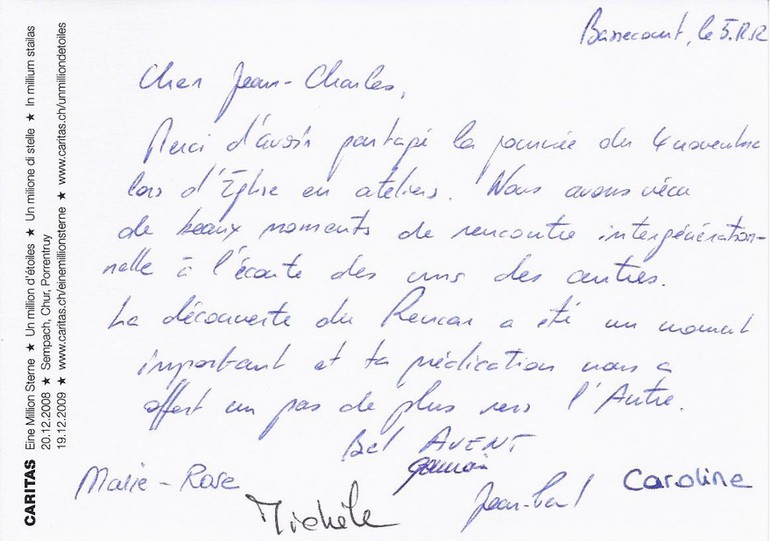 Bassecourt, le 5.12.12
Cher Jean-Charles,
Merci d'avoir partagé la journée du 4 novembre
lors d'Eglise en ateliers. Nous avons vécu
de beaux moments de rencontre intergénération-
nelle à l'écoute des uns des autres.
La découverte du Rencar a été un moment
important et ta prédication nous a
offert un pas de plus vers l'Autre.
Bel AVENT
Marie-Rose
Michèle
Caroline
CARITAS Eine Million Sterne ★ Un million d'étoiles ★ Un milione di stelle ★ In millium stailas
20.12.2008 ★ Sempach, Chur, Porrentruy
19.12.2009 ★ www.caritas.ch/einemillionsterne ★ www.caritas.ch/unmilliondetoiles